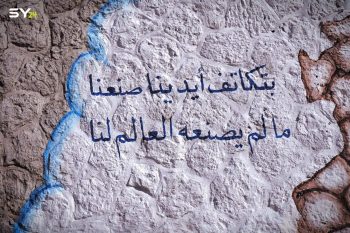 SY24
بتكاتف أيدينا صنعنا
ما لم يصنعه العالم لنا